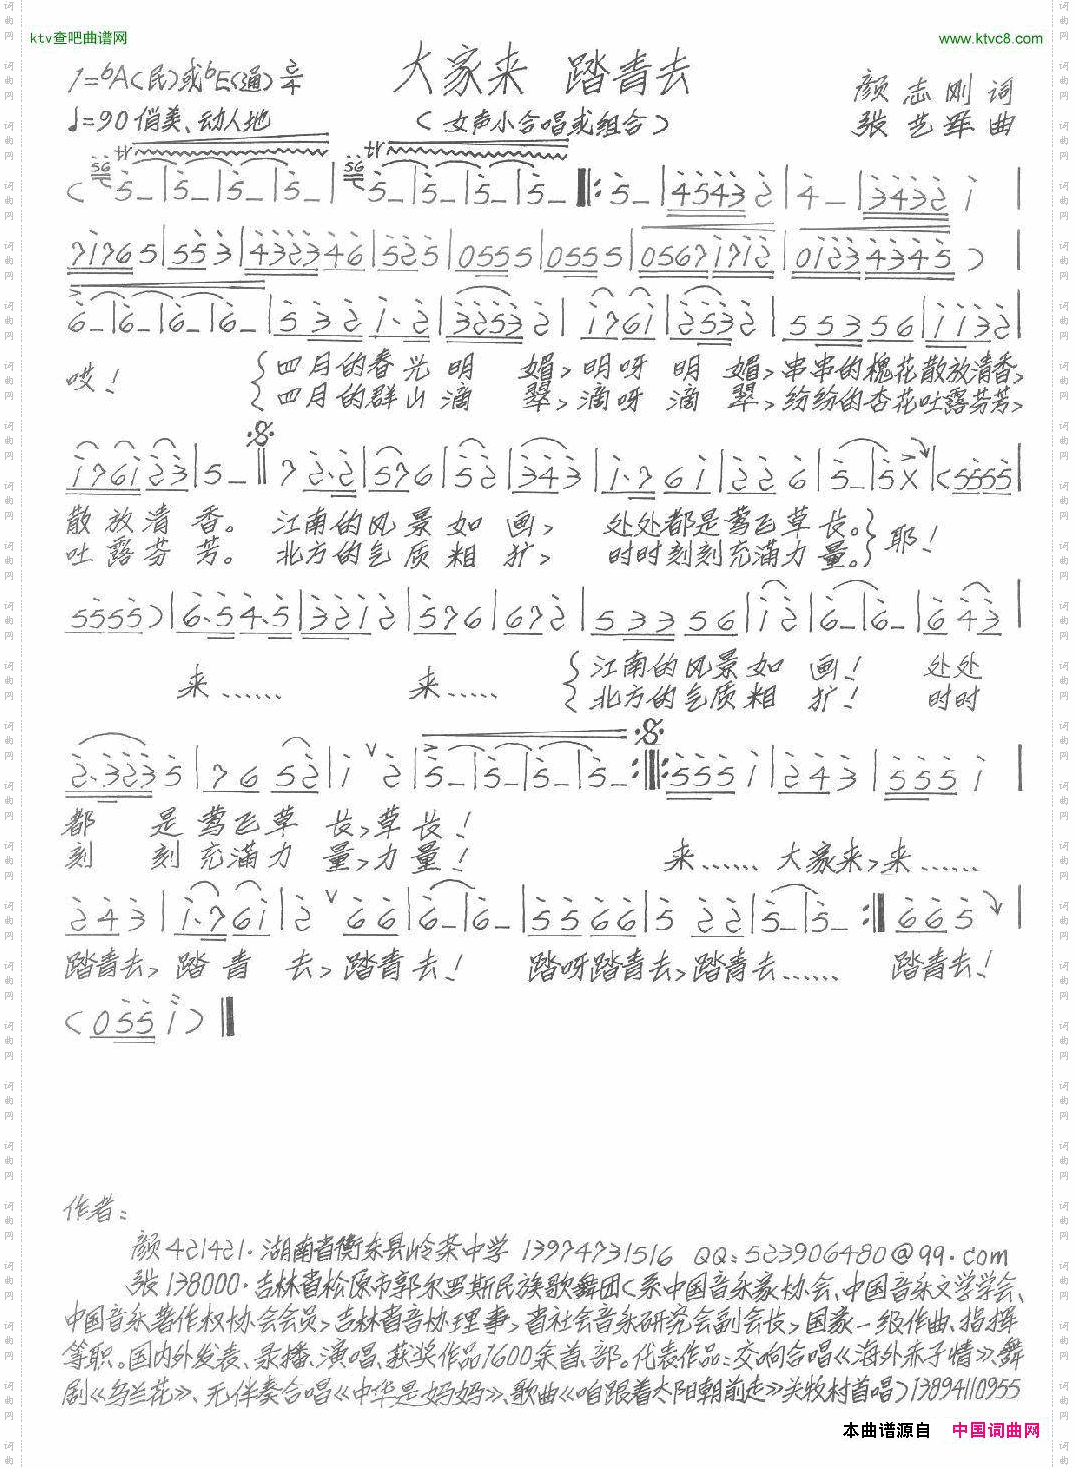 ktv查吧曲谱网
www.ktvc8.com
大家来 踏青去
1=ᵇA(民)或ᵇE(通) 2/4
♩=90 俏美、动人地
(女声小合唱或组合)
颜志刚 词
张艺军 曲
哎!
四月的春光明 媚,明呀 明 媚,串串的槐花散放清香,
四月的群山滴 翠,滴呀 滴 翠,纷纷的杏花吐露芬芳,
散放清香。 江南的风景如画, 处处都是莺飞草长。
吐露芬芳。 北方的气质粗扩, 时时刻刻充满力量。
耶!
来…… 来……
江南的风景如 画! 处处
北方的气质粗 扩! 时时
都 是莺飞草 长,草长!
刻 刻充满力 量,力量!
来…… 大家来,来……
踏青去,踏青 去,踏青去! 踏呀踏青去,踏青去…… 踏青去!
作者:
颜421421·湖南省衡东县岭茶中学 13974731516 QQ:523906480@qq.com
张138000·吉林省松原市郭尔罗斯民族歌舞团(系中国音乐家协会、中国音乐文学学会、
中国音乐著作权协会会员,吉林省音协理事,省社会音乐研究会副会长,国家一级作曲、指挥
等职。国内外发表、录播、演唱、获奖作品1600余首、部。代表作品:交响合唱《海外赤子情》、舞
剧《乌兰花》、无伴奏合唱《中华是妈妈》、歌曲《咱跟着太阳朝前走》关牧村首唱)13894110955
本曲谱源自 中国词曲网